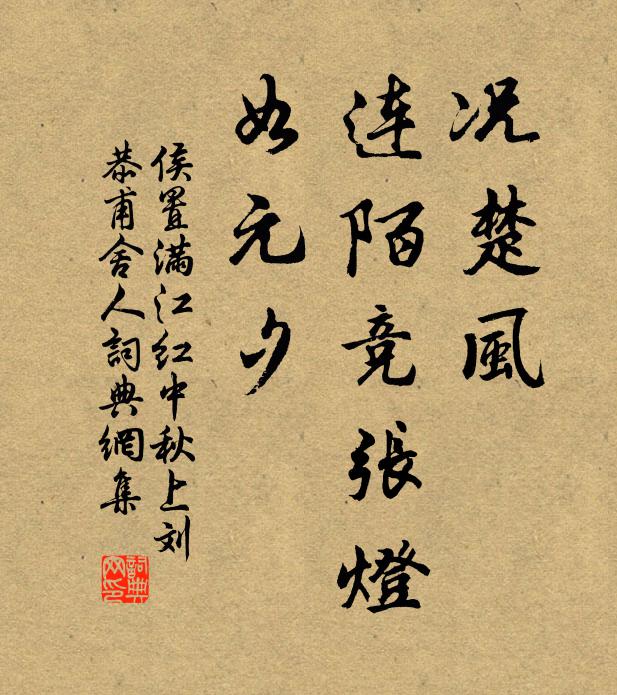 况楚風
连陌竞張燈
如元夕
侯置满江红中秋上刘
恭甫舍人詞典網集
詞典网印